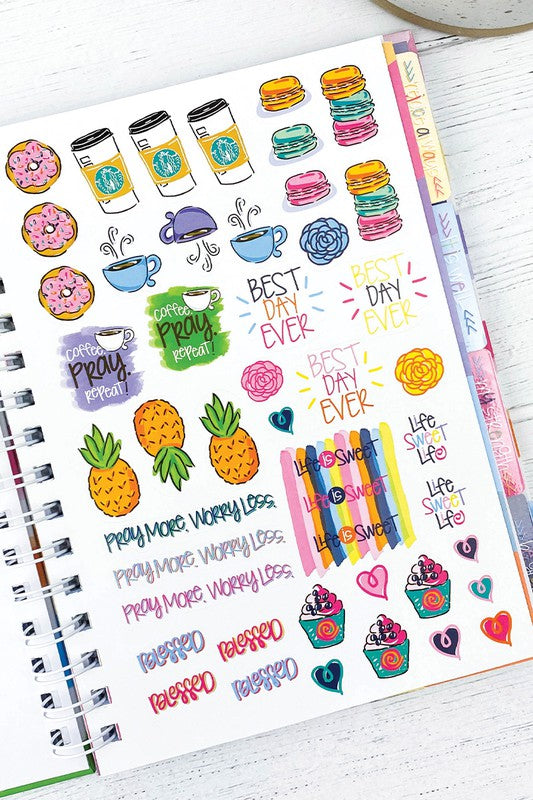 BEST
DAY
EVER
BEST
DAY
EVER
Coffee.
PRAY.
REPEAT!
Coffee.
PRAY.
REPEAT!
BEST
DAY
EVER
Life is Sweet
Life is Sweet
Life is Sweet
Life
Sweet
Life
Life
Sweet
Life
PRAY MORE. WORRY LESS.
PRAY MORE. WORRY LESS.
PRAY MORE. WORRY LESS.
BLESSED
BLESSED
BLESSED
BLESSED